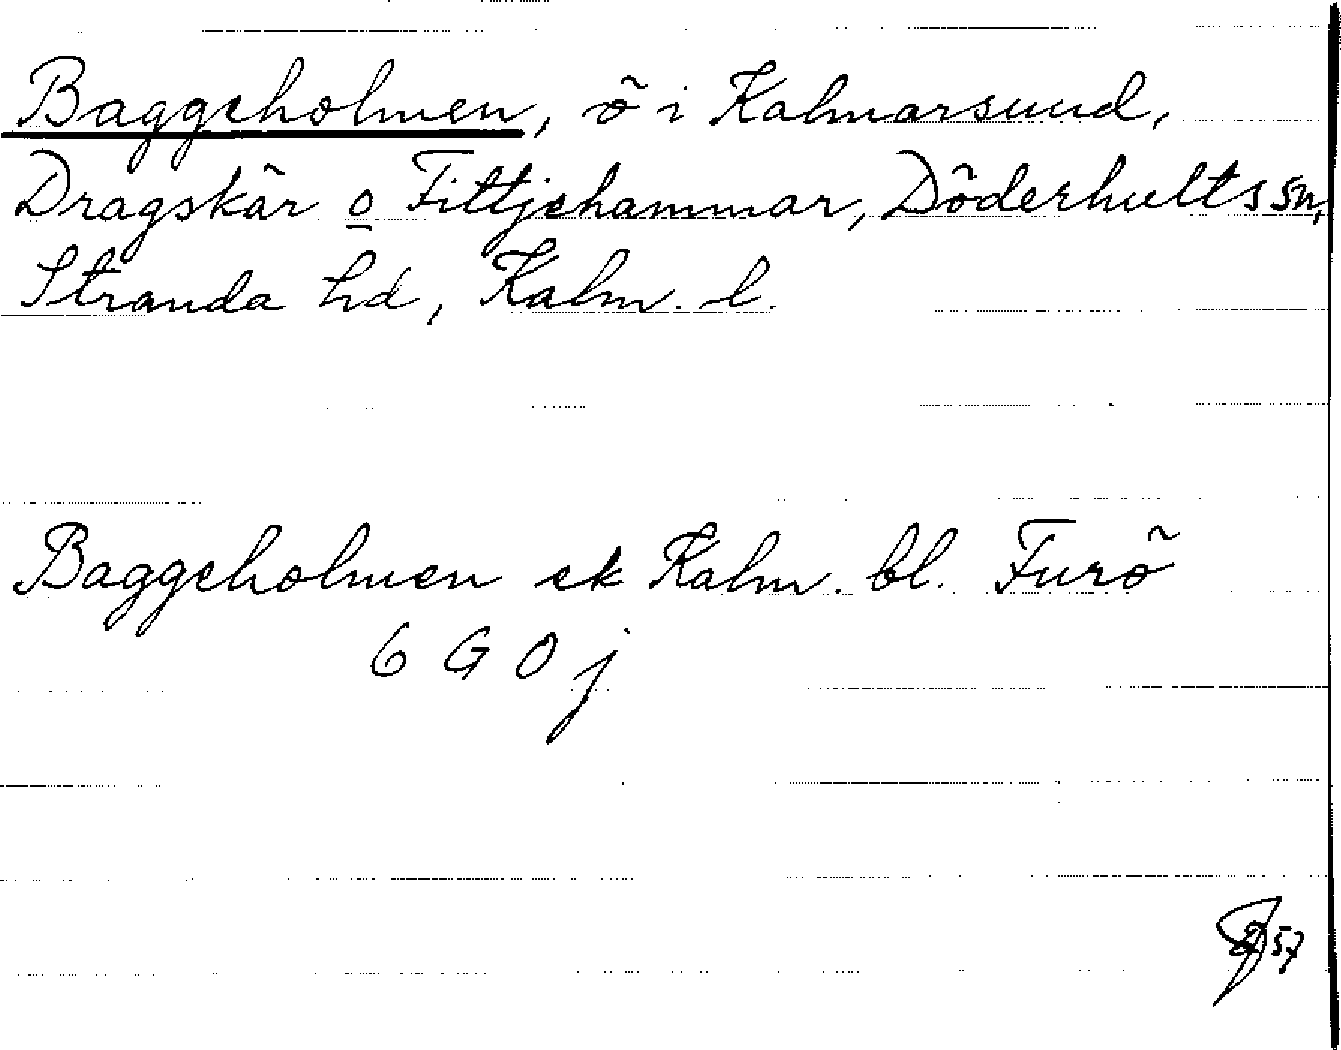 Baggeholmen, ö i Kalmarsund,
Dragskär o Fittjehammar, Döderhults sn,
Stranda hd, Kalm. l.
Baggeholmen ek Kalm. bl. Furö
6 G O j
57